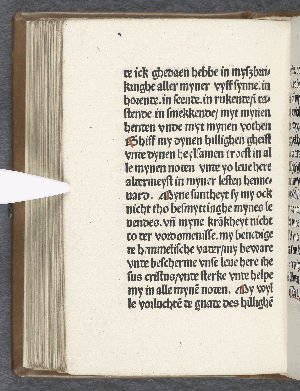 te ick ghedaen hebbe in myſzbru-
kinghe aller myner vyff ſynne. in
horente. in ſeente. in rukente/ taſ-
tende in ſmekkende/ myt mynen
henten vnde myt mynen vothen
Ghiff my dynen hillighen gheiſt
vnte dynen heylſamen troeſt in al
le mynen noten vnte yo leue here
aldermeyſt in myner leſten henne-
uard. Myne ſuntheyt ſy my ock
nicht tho beſmyttinghe mynes le
uendes. vñ myne krãkheyt nicht
to der vordomeniſſe. my benedige
te hemmelſche vater/my beware
vnte beſcherme vnſe leue here ihe
ſus criſtus/vnte ſterke vnte helpe
my in alle mynẽ noten. My wyl
le vorluchtẽ te gnate des hillighẽ